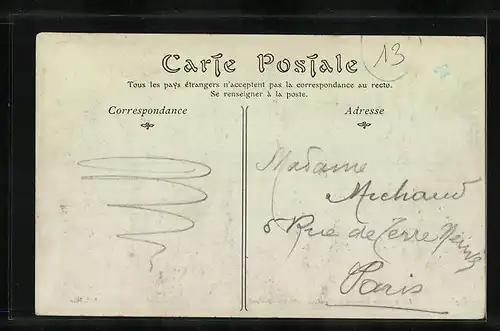 13
Carte Postale
Tous les pays étrangers n'acceptent pas la correspondance au recto.
Se renseigner à la poste.
Correspondance
Adresse
Madame
Michaud
8 Rue de Terre Neuve
Paris